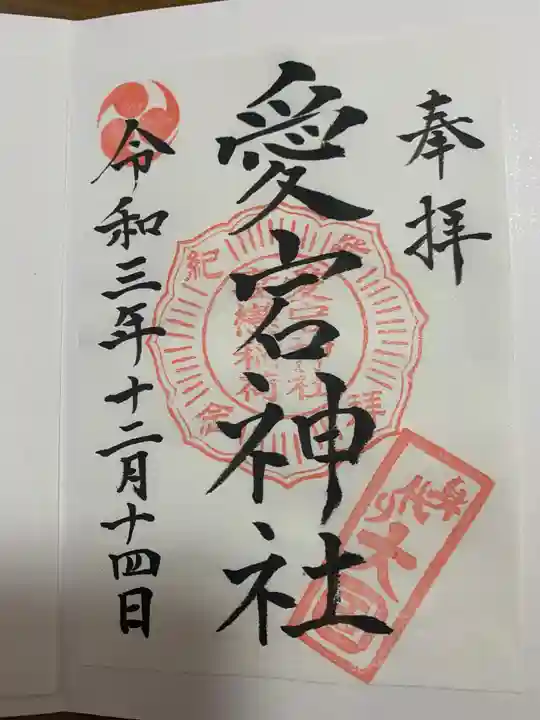 奉拝
愛宕神社
令和三年十二月十四日
参拝
紀念
愛宕神社
稲荷
大国